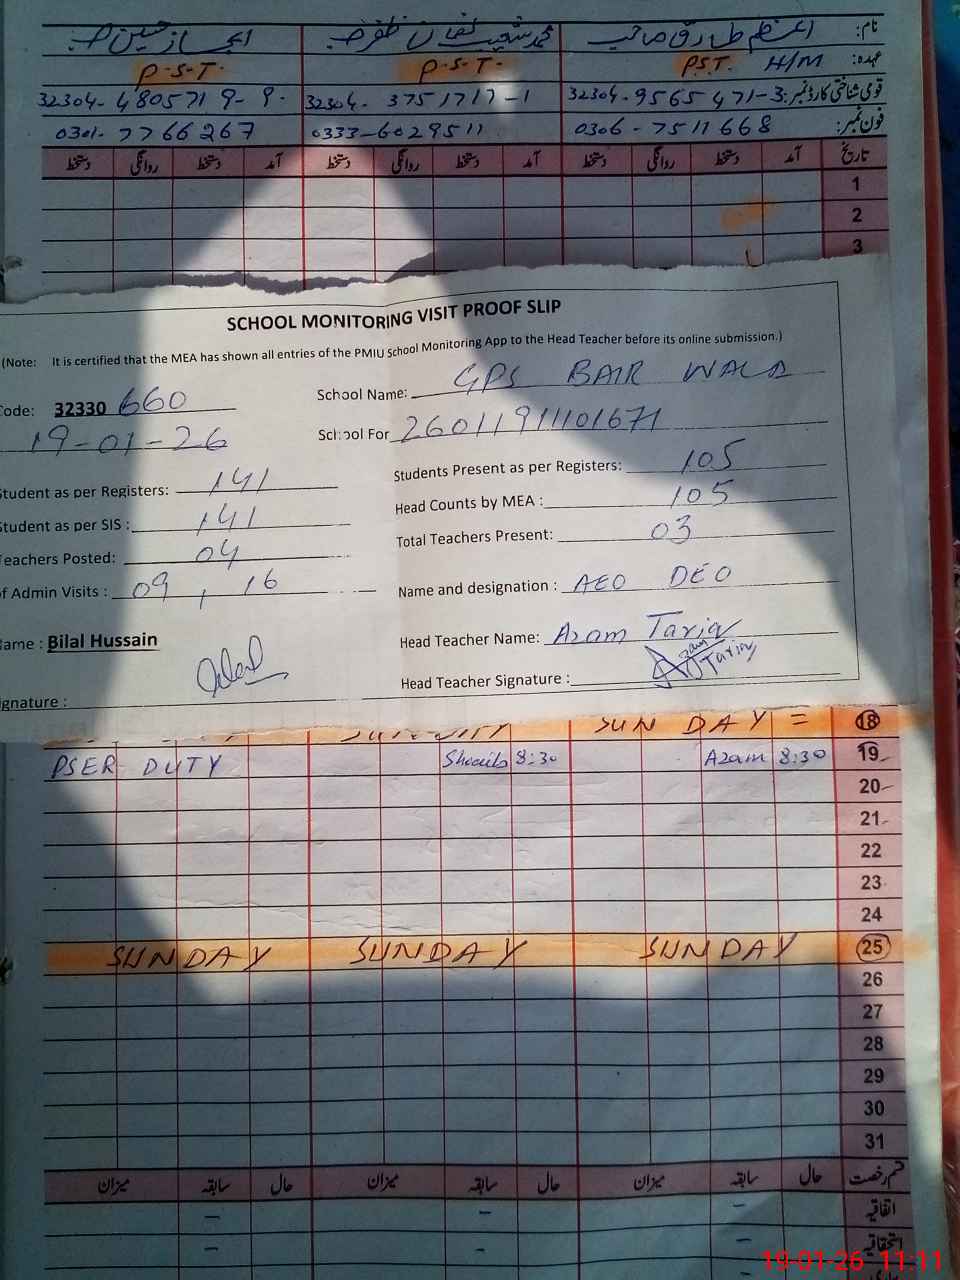 نام: اعظم طارق صاحب محمد شعیب لقمان ظفر صاحب اعجاز حسین صاحب
عہدہ: P.S.T. H/M P.S.T. P.S.T.
قومی شناختی کارڈ نمبر: 32304-9565471-3 32304-3751717-1 32304-4805719-9
فون نمبر: 0306-7511668 0333-6029511 0301-7766267
تاریخ آمد دستخط روانگی دستخط آمد دستخط روانگی دستخط آمد دستخط روانگی دستخط
1
2
3
SCHOOL MONITORING VISIT PROOF SLIP
(Note: It is certified that the MEA has shown all entries of the PMIU School Monitoring App to the Head Teacher before its online submission.)
Code: 32330 660 School Name: GPS BAIR WALA
19-01-26 School For 26011911101671
Student as per Registers: 141 Students Present as per Registers: 105
Student as per SIS : 141 Head Counts by MEA : 105
Teachers Posted: 04 Total Teachers Present: 03
of Admin Visits : 09 , 16 Name and designation : AEO DEO
Name : Bilal Hussain Head Teacher Name: Azam Tariq
gnature : Head Teacher Signature : Azam Tariq
SUNDAY = 18
PSER DUTY Shoaib 8:30 Azam 8:30 19
20
21
22
23
24
SUNDAY SUNDAY SUNDAY 25
26
27
28
29
30
31
قسم رخصت حال سابقہ میزان حال سابقہ میزان حال سابقہ میزان
اتفاقیہ - - -
استحقاقیہ - - -
19-01-26 11:11